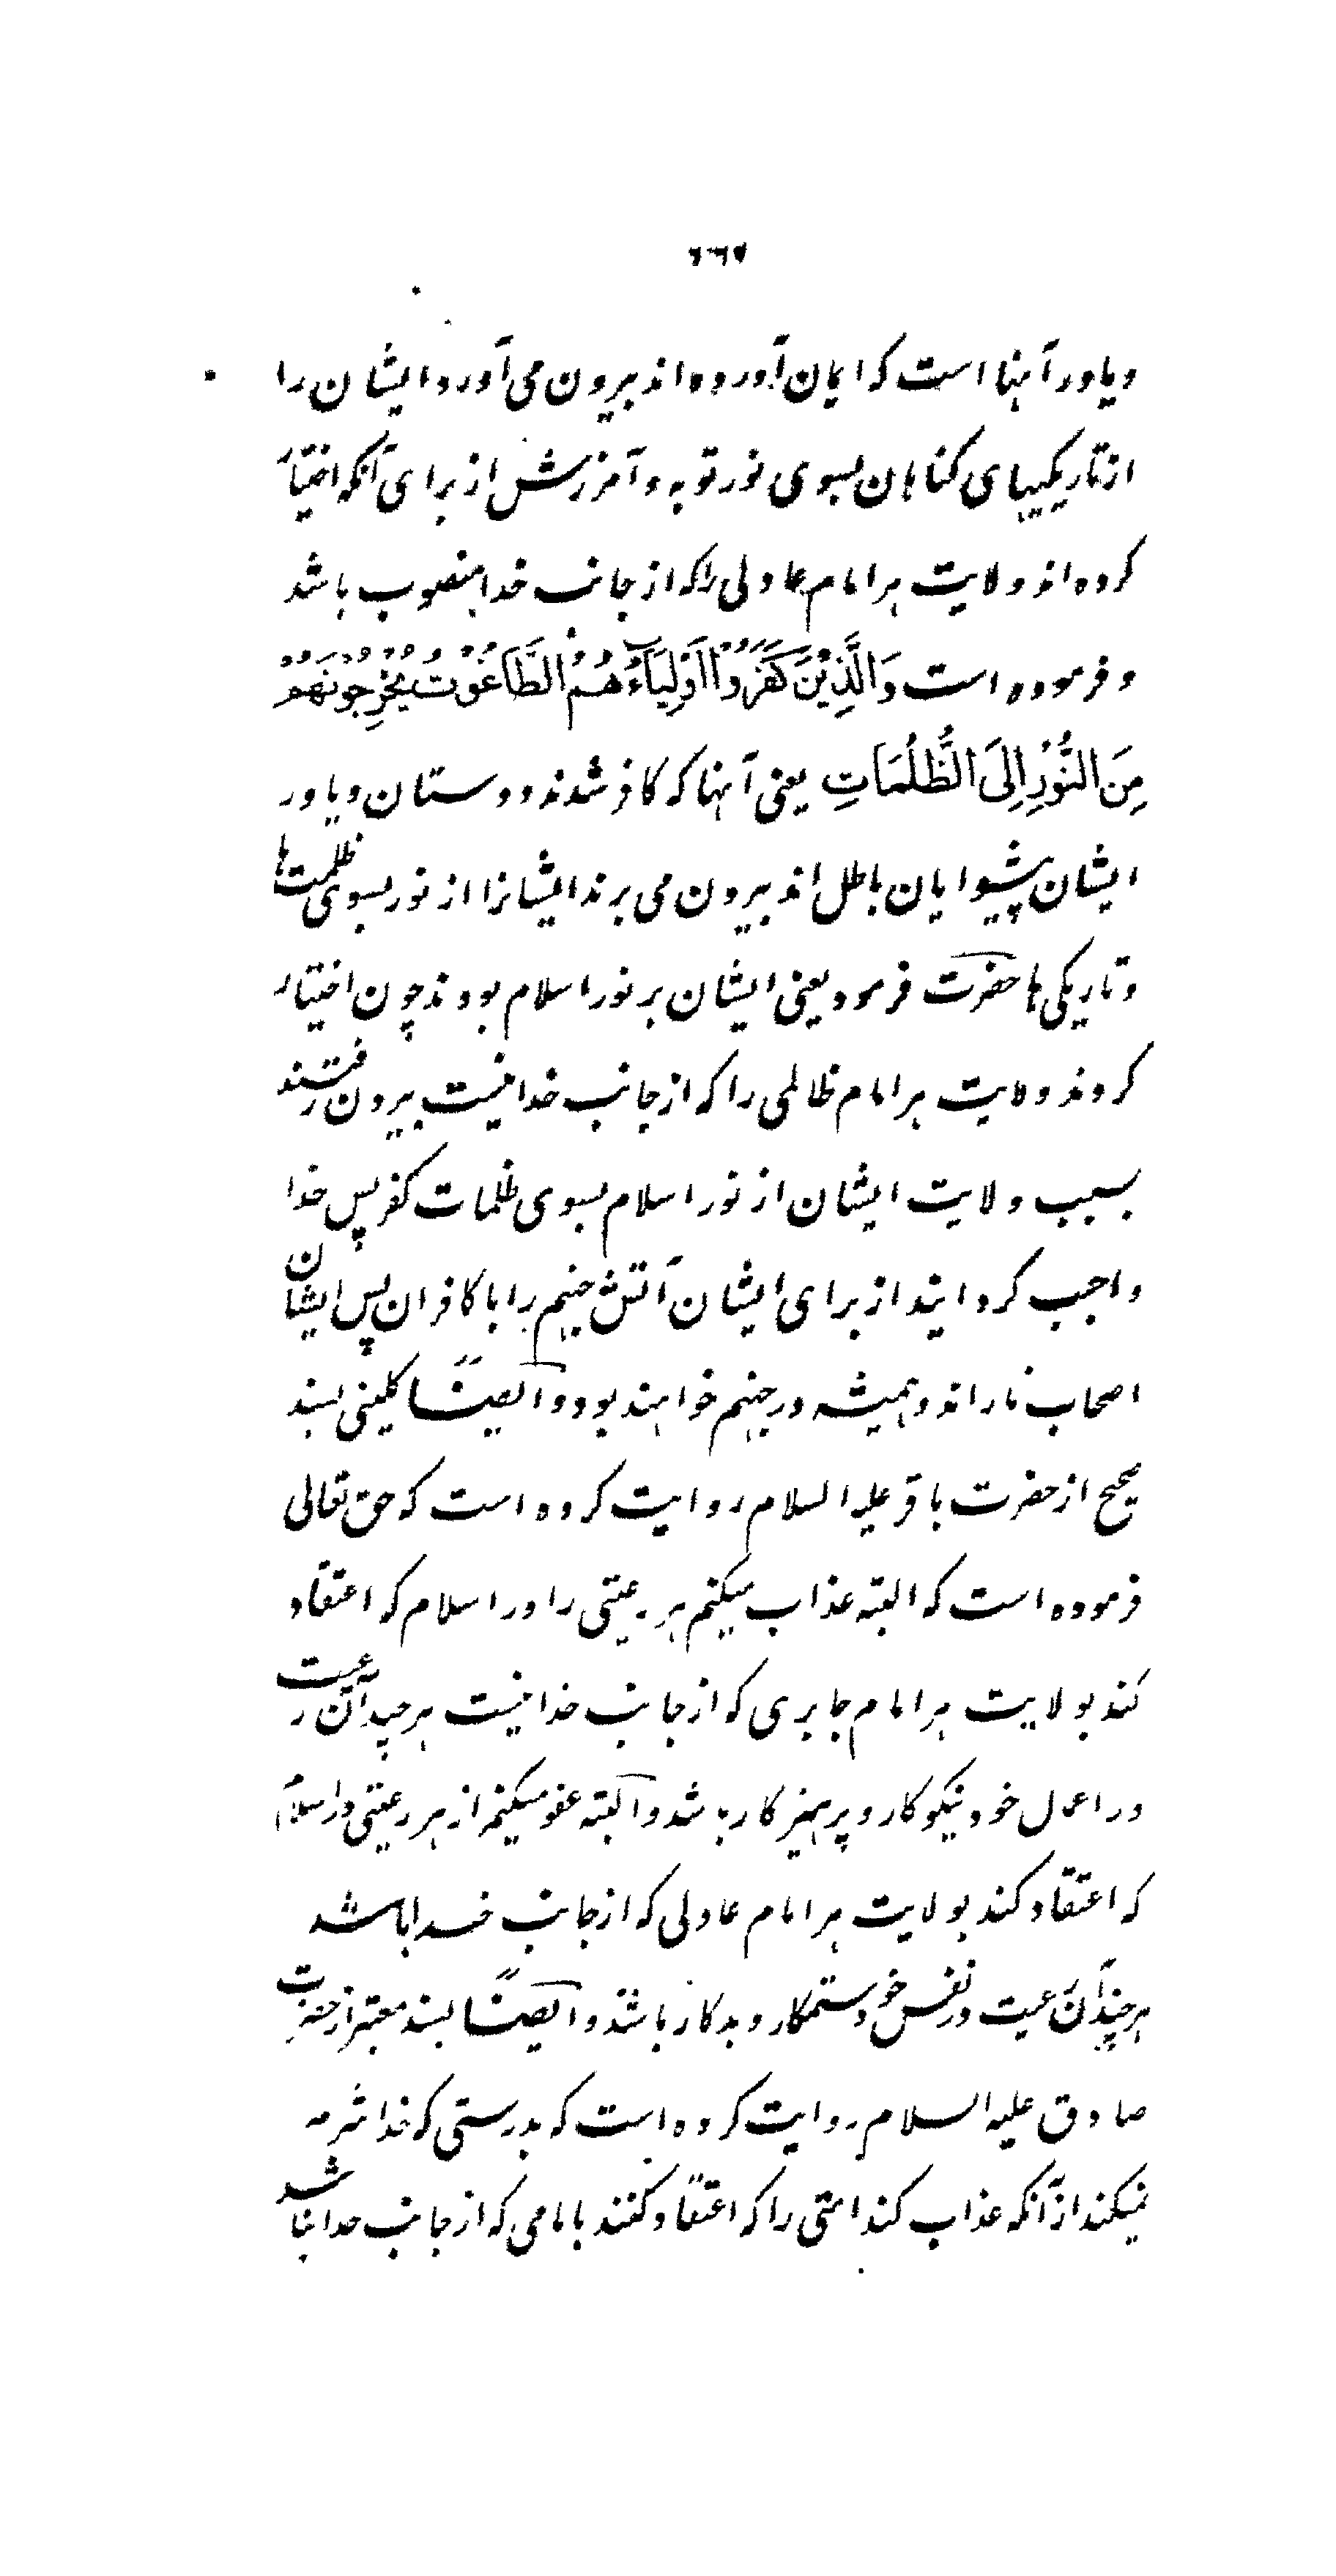 ویاور آنها است که ایمان آورده اند بیرون می آورد ایشان را
از تاریکیهای کناهان بسوی نور توبه و آمرزش از برای آنکه اختیار
کرده اند ولایت هر امام عادلی را که از جانب خدا منصوب باشد
و فرموده است وَالَّذِیْنَ کَفَرُوْا اَوْلِیَآءُهُمُ الطَّاغُوْتُ یُخْرِجُوْنَهُمْ
مِنَ النُّوْرِ اِلَی الظُّلُمَاتِ یعنی آنها که کافر شدند دوستان ویاور
ایشان پیشوایان باطل اند بیرون می برند ایشانرا از نور بسوی ظلمت ها
و تاریکی ها حضرت فرمود یعنی ایشان بر نور اسلام بودند چون اختیار
کردند ولایت هر امام ظالمی را که از جانب خدا نیست بیرون رفتند
بسبب ولایت ایشان از نور اسلام بسوی ظلمات کفر پس خدا
واجب کردانید از برای ایشان آتش جهنم را با کافران پس ایشان
اصحاب نار اند و همیشه در جهنم خواهند بود و ایضًا کلینی بسند
صحیح از حضرت باقر علیه السلام روایت کرده است که حق تعالی
فرموده است که البته عذاب میکنم هر رعیتی را در اسلام که اعتقاد
کند بولایت هر امام جابری که از جانب خدا نیست هر چند آن رعیت
در اعمال خود نیکوکار و پرهیزکار باشد و البته عفو میکنم از هر رعیتی در اسلام
که اعتقاد کند بولایت هر امام عادلی که از جانب خدا باشد
هر چند آن رعیت در نفس خود ستمکار و بدکار باشد و ایضًا بسند معتبر از حضرت
صادق علیه السلام روایت کرده است که بدرستی که خدا شرم
نمیکند از آنکه عذاب کند امتی را که اعتقاد کنند بامامی که از جانب خدا نباشد